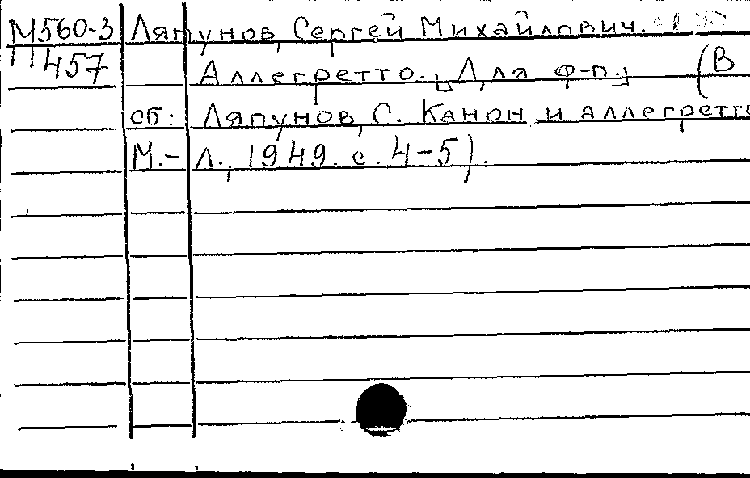 М560-3 Ляпунов, Сергей Михайлович.
457 Аллегретто. [Для ф-п.] (В
сб.: Ляпунов, С. Канон и аллегретто
М.-Л., 1949. с. 4-5).